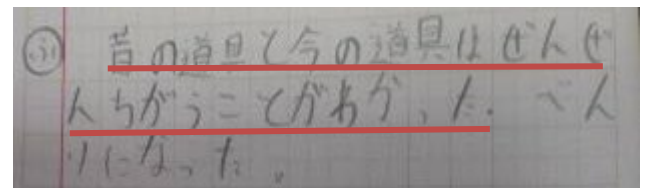 ふ 昔の道具と今の道具はぜんぜ
んちがうことがわかった。べん
りになった。